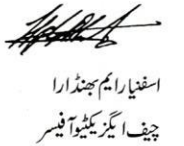 اسفنیار ایم بھنڈارا
چیف ایگزیکٹیو آفیسر